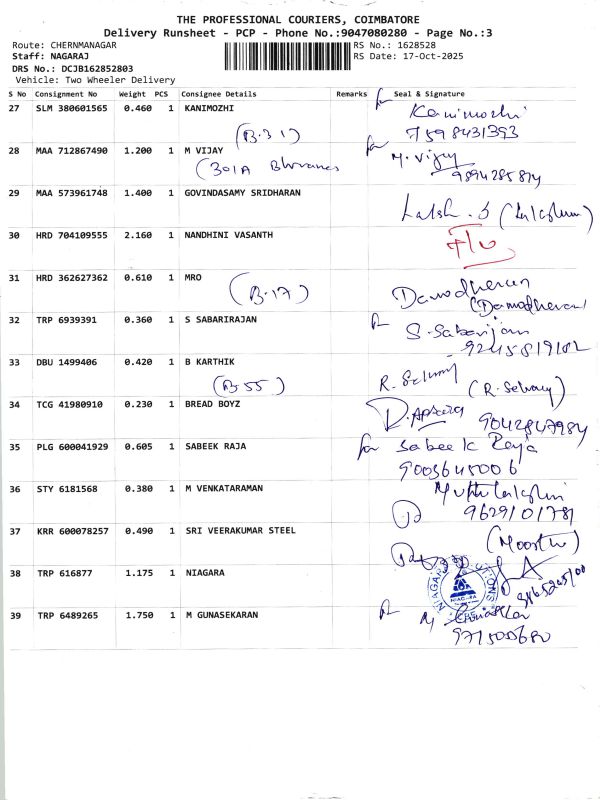 THE PROFESSIONAL COURIERS, COIMBATORE
Delivery Runsheet - PCP - Phone No.:9047080280 - Page No.:3
Route: CHERNMANAGAR RS No.: 1628528
Staff: NAGARAJ RS Date: 17-Oct-2025
DRS No.: DCJB162852803
Vehicle: Two Wheeler Delivery
S No Consignment No Weight PCS Consignee Details Remarks Seal & Signature
27 SLM 380601565 0.460 1 KANIMOZHI for Kanimozhi
(B-31) 7598431393
28 MAA 712867490 1.200 1 M VIJAY for M. Vijay
(301A 9894285874
29 MAA 573961748 1.400 1 GOVINDASAMY SRIDHARAN
30 HRD 704109555 2.160 1 NANDHINI VASANTH
31 HRD 362627362 0.610 1 MRO
(B-17) Damodheran
(Damodheran)
32 TRP 6939391 0.360 1 S SABARIRAJAN
33 DBU 1499406 0.420 1 B KARTHIK
(B-55)
34 TCG 41980910 0.230 1 BREAD BOYZ
9042847984
35 PLG 600041929 0.605 1 SABEEK RAJA for Sabeek Raja
9003645006
36 STY 6181568 0.380 1 M VENKATARAMAN
9629101781
37 KRR 600078257 0.490 1 SRI VEERAKUMAR STEEL
38 TRP 616877 1.175 1 NIAGARA
NIAGARA
39 TRP 6489265 1.750 1 M GUNASEKARAN